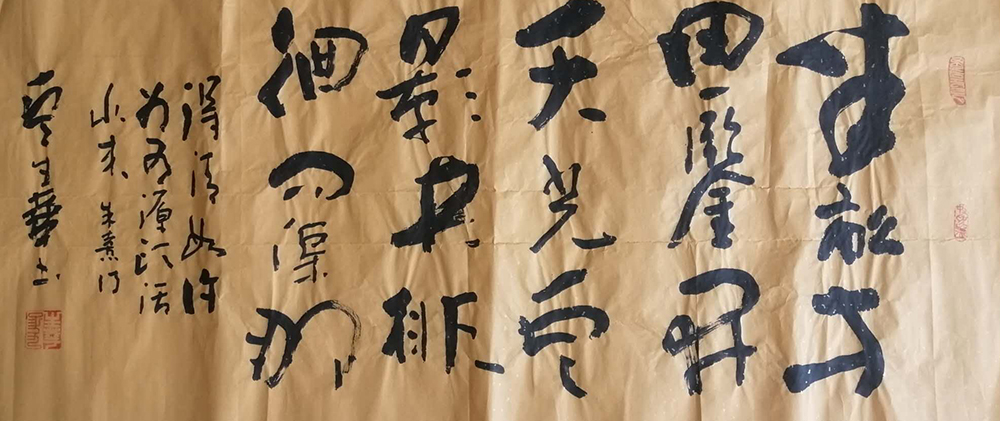 半畝方
塘一鑒开
天光云
影共徘
徊问渠那
得清如许
为有源头活
水来 朱熹诗